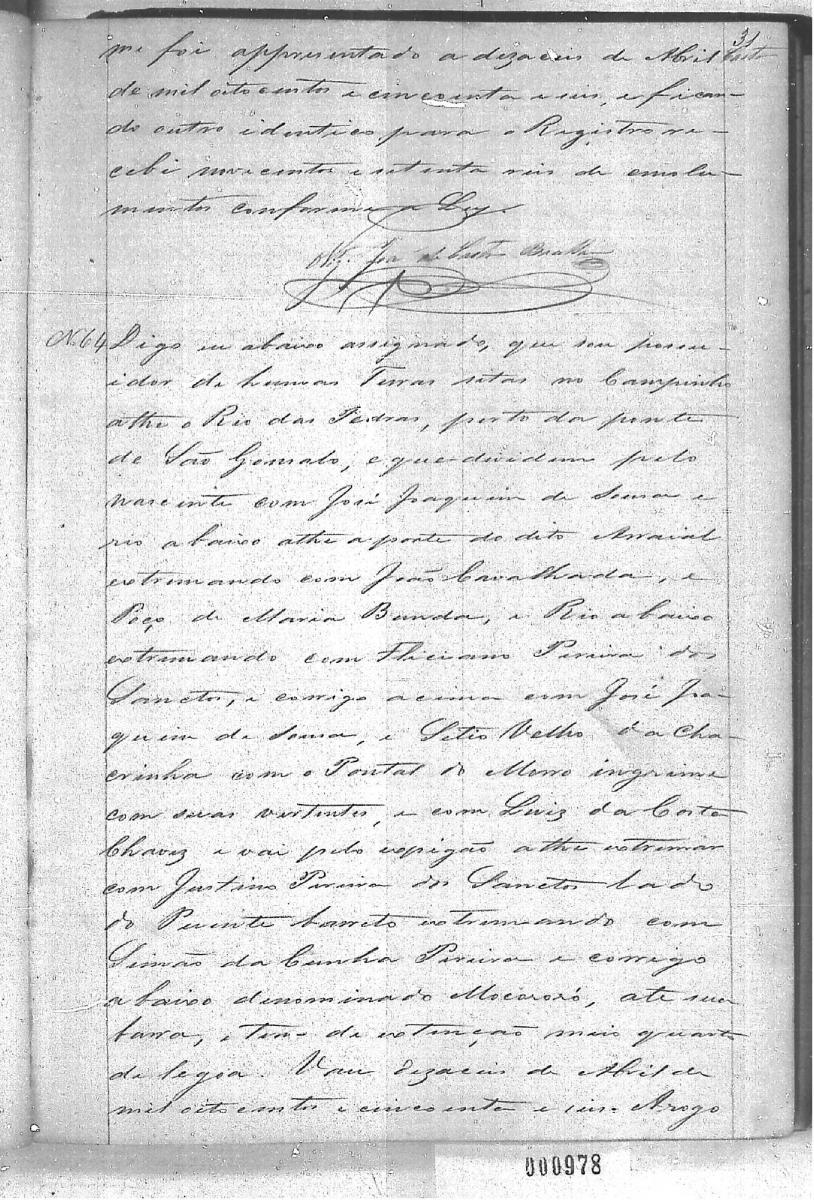 31
me foi appresentado a dezaceis de Abril
de mil oito centos e cincoenta e seis, e fican-
do outro identico para o Registro re-
cebi novecentos e setenta reis de emolu-
mentos conforme a Ley.
de Castro
N. 64 Digo eu abaixo assignado, que sou possu-
idor de humas Terras sitas no Campinho
athe o Rio das Pedras, perto da ponte
de São Gonsalo, e que dividem pelo
nascente com José Joaquim de Sousa e
rio abaixo athe a ponte do dito Arraial
extremando com João Cavalhada, e
Poço de Maria Bunda, e Rio abaixo
extremando com Fliciano Pereira dos
Sanctos, e corrigo acima com José Joa-
quim de Sousa, e Sitio Velho da Cha-
crinha com o Pontal do Morro ingrime
com suas vertentes, e com Luiz da Costa
Chavez e vai pelo espigão athe extremar
com Justino Pereira dos Sanctos lado
do Puente barreto extremando com
Simão da Cunha Pereira e corrigo
abaixo denominado Mocoró, ate sua
barra, e tem de extenção meio quarto
de legoa. Vau dezaceis de Abril de
mil oito centos e cincoenta e seis. Arogo
000978